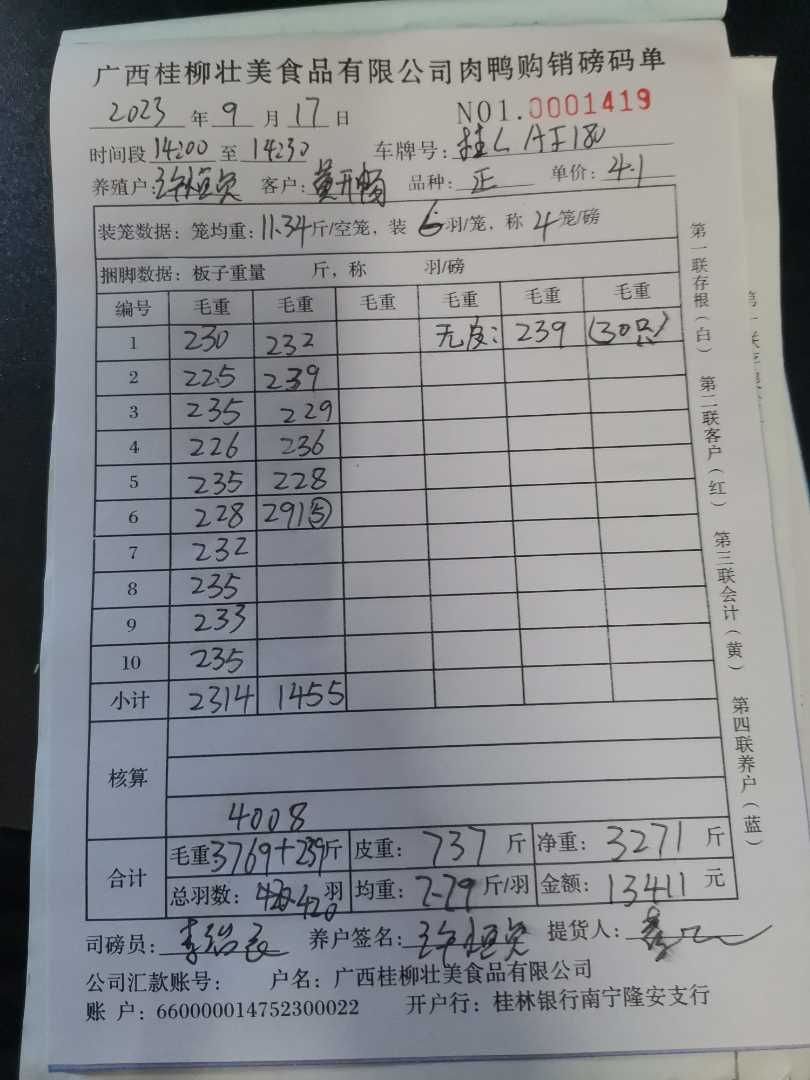 广西桂柳壮美食品有限公司肉鸭购销磅码单
2023 年 9 月 17 日 NO1.0001419
时间段 14:00 至 14:30 车牌号: 桂 AF180
养殖户: 客户: 黄开畅 品种: 正 单价: 4.1
装笼数据: 笼均重: 11.34 斤/空笼, 装 6 羽/笼, 称 4 笼/磅
捆脚数据: 板子重量 斤, 称 羽/磅
编号 毛重 毛重 毛重 毛重 毛重 毛重
1 230 232 无皮: 239 (30只)
2 225 239
3 235 229
4 226 236
5 235 228
6 228 291⑤
7 232
8 235
9 233
10 235
小计 2314 1455
核算
4008
合计 毛重 3769+239 斤 皮重: 737 斤 净重: 3271 斤
总羽数: 420 羽 均重: 7.79 斤/羽 金额: 13411 元
司磅员: 养户签名: 提货人:
公司汇款账号: 户名: 广西桂柳壮美食品有限公司
账 户: 660000014752300022 开户行: 桂林银行南宁隆安支行
第一联存根(白) 第二联客户(红) 第三联会计(黄) 第四联养户(蓝)